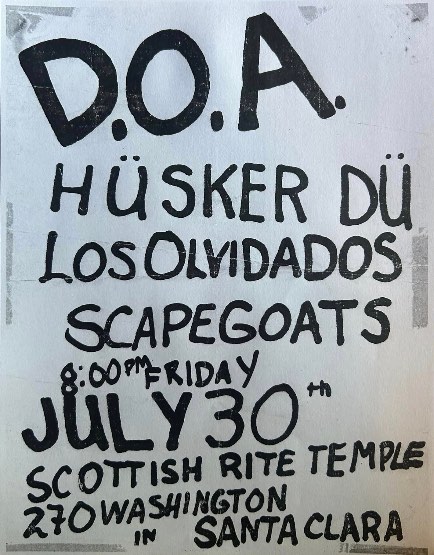 D.O.A.
HÜSKER DÜ
LOS OLVIDADOS
SCAPEGOATS
8:00PM FRIDAY
JULY 30th
SCOTTISH RITE TEMPLE
270 WASHINGTON
IN SANTA CLARA